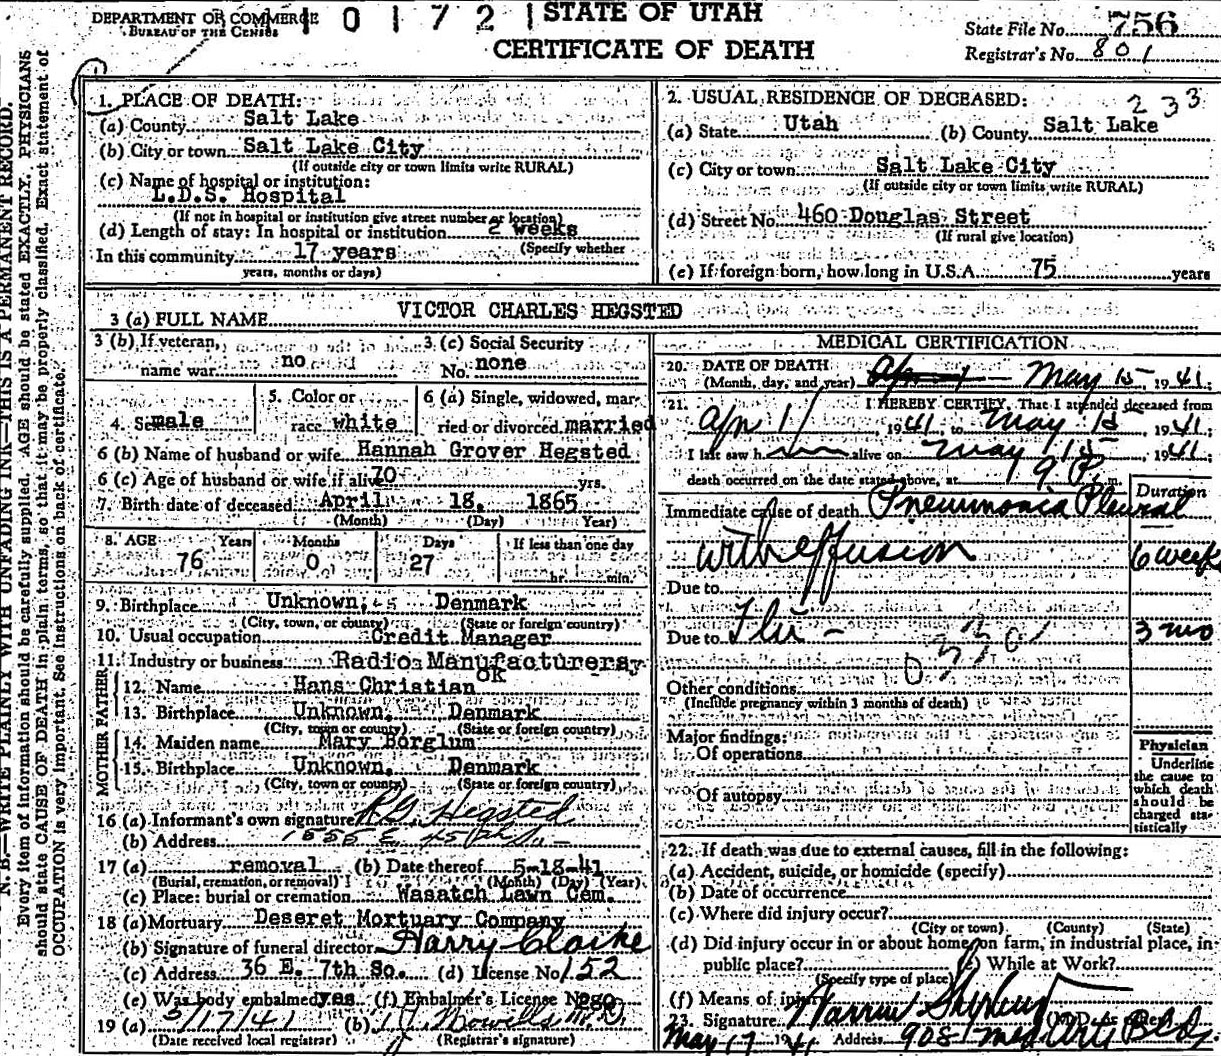 DEPARTMENT OF COMMERCE
BUREAU OF THE CENSUS
1 0 1 7 2 1
STATE OF UTAH
CERTIFICATE OF DEATH
State File No. 756
Registrar's No. 801
N. B.—WRITE PLAINLY WITH UNFADING INK—THIS IS A PERMANENT RECORD.
Every item of information should be carefully supplied. AGE should be stated EXACTLY. PHYSICIANS
should state CAUSE OF DEATH in plain terms, so that it may be properly classified. Exact statement of
OCCUPATION is very important. See instructions on back of certificate.
1. PLACE OF DEATH:
(a) County Salt Lake
(b) City or town Salt Lake City
(If outside city or town limits write RURAL)
(c) Name of hospital or institution:
L.D.S. Hospital
(If not in hospital or institution give street number or location)
(d) Length of stay: In hospital or institution 2 weeks
In this community 17 years (Specify whether
years, months or days)
2. USUAL RESIDENCE OF DECEASED: 233
(a) State Utah (b) County Salt Lake
(c) City or town Salt Lake City
(If outside city or town limits write RURAL)
(d) Street No. 460 Douglas Street
(If rural give location)
(e) If foreign born, how long in U.S.A. 75 years
3 (a) FULL NAME VICTOR CHARLES HEGSTED
3 (b) If veteran, name war no
3 (c) Social Security No. none
4. Sex male
5. Color or race white
6 (a) Single, widowed, married or divorced married
6 (b) Name of husband or wife Hannah Grover Hegsted
6 (c) Age of husband or wife if alive 70 yrs.
7. Birth date of deceased April 18, 1865
(Month) (Day) Year)
8. AGE Years Months Days If less than one day
76 0 27 hr. min.
9. Birthplace Unknown, Denmark
(City, town, or county) (State or foreign country)
10. Usual occupation Credit Manager
11. Industry or business Radio Manufacturers
FATHER
12. Name Hans Christian OK
13. Birthplace Unknown, Denmark
(City, town or county) (State or foreign country)
MOTHER
14. Maiden name Mary Borglum
15. Birthplace Unknown, Denmark
(City, town or county) (State or foreign country)
16 (a) Informant's own signature Hegsted
(b) Address 1555 E 45
17 (a) removal (b) Date thereof 5-18-41
(Burial, cremation, or removal) (Month) (Day) (Year)
(c) Place: burial or cremation Wasatch Lawn Cem.
18 (a) Mortuary Deseret Mortuary Company
(b) Signature of funeral director Harry Clarke
(c) Address 36 E. 7th So. (d) License No 152
(e) Was body embalmed yes (f) Embalmer's License No
19 (a) 5/17/41 (b)
(Date received local registrar) (Registrar's signature)
MEDICAL CERTIFICATION
20. DATE OF DEATH
(Month, day, and year) May 15, 1941;
21. I HEREBY CERTIFY, That I attended deceased from
Apr 1, 1941, to May 15, 1941;
I last saw h alive on May 15, 1941;
death occurred on the date stated above, at 9 P. m.
Duration
Immediate cause of death Pneumonia Pleural
with effusion 6 weeks
Due to
Due to Flu - 3 mo
Other conditions
(Include pregnancy within 3 months of death)
Major findings:
Of operations
Of autopsy
Physician
Underline
the cause to
which death
should be
charged sta-
tistically
22. If death was due to external causes, fill in the following:
(a) Accident, suicide, or homicide (specify)
(b) Date of occurrence
(c) Where did injury occur?
(City or town) (County) (State)
(d) Did injury occur in or about home, on farm, in industrial place, in
public place? (e) While at Work?
(Specify type of place)
(f) Means of injury
23. Signature (M.D. or other)
May 17 1941 Address 908 Med Arts Bldg